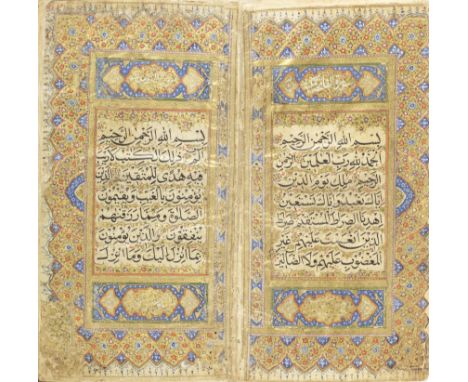 بسم الله الرحمن الرحيم
الحمد لله رب العلمين الرحمن
الرحيم ملك يوم الدين
اياك نعبد واياك نستعين
اهدنا الصراط المستقيم صراط
الذين انعمت عليهم غير
المغضوب عليهم ولا الضالين
بسم الله الرحمن الرحيم
الم ذلك الكتب لا ريب
فيه هدى للمتقين الذين
يؤمنون بالغيب ويقيمون
الصلوة ومما رزقنهم
ينفقون والذين يؤمنون
بما انزل اليك وما انزل